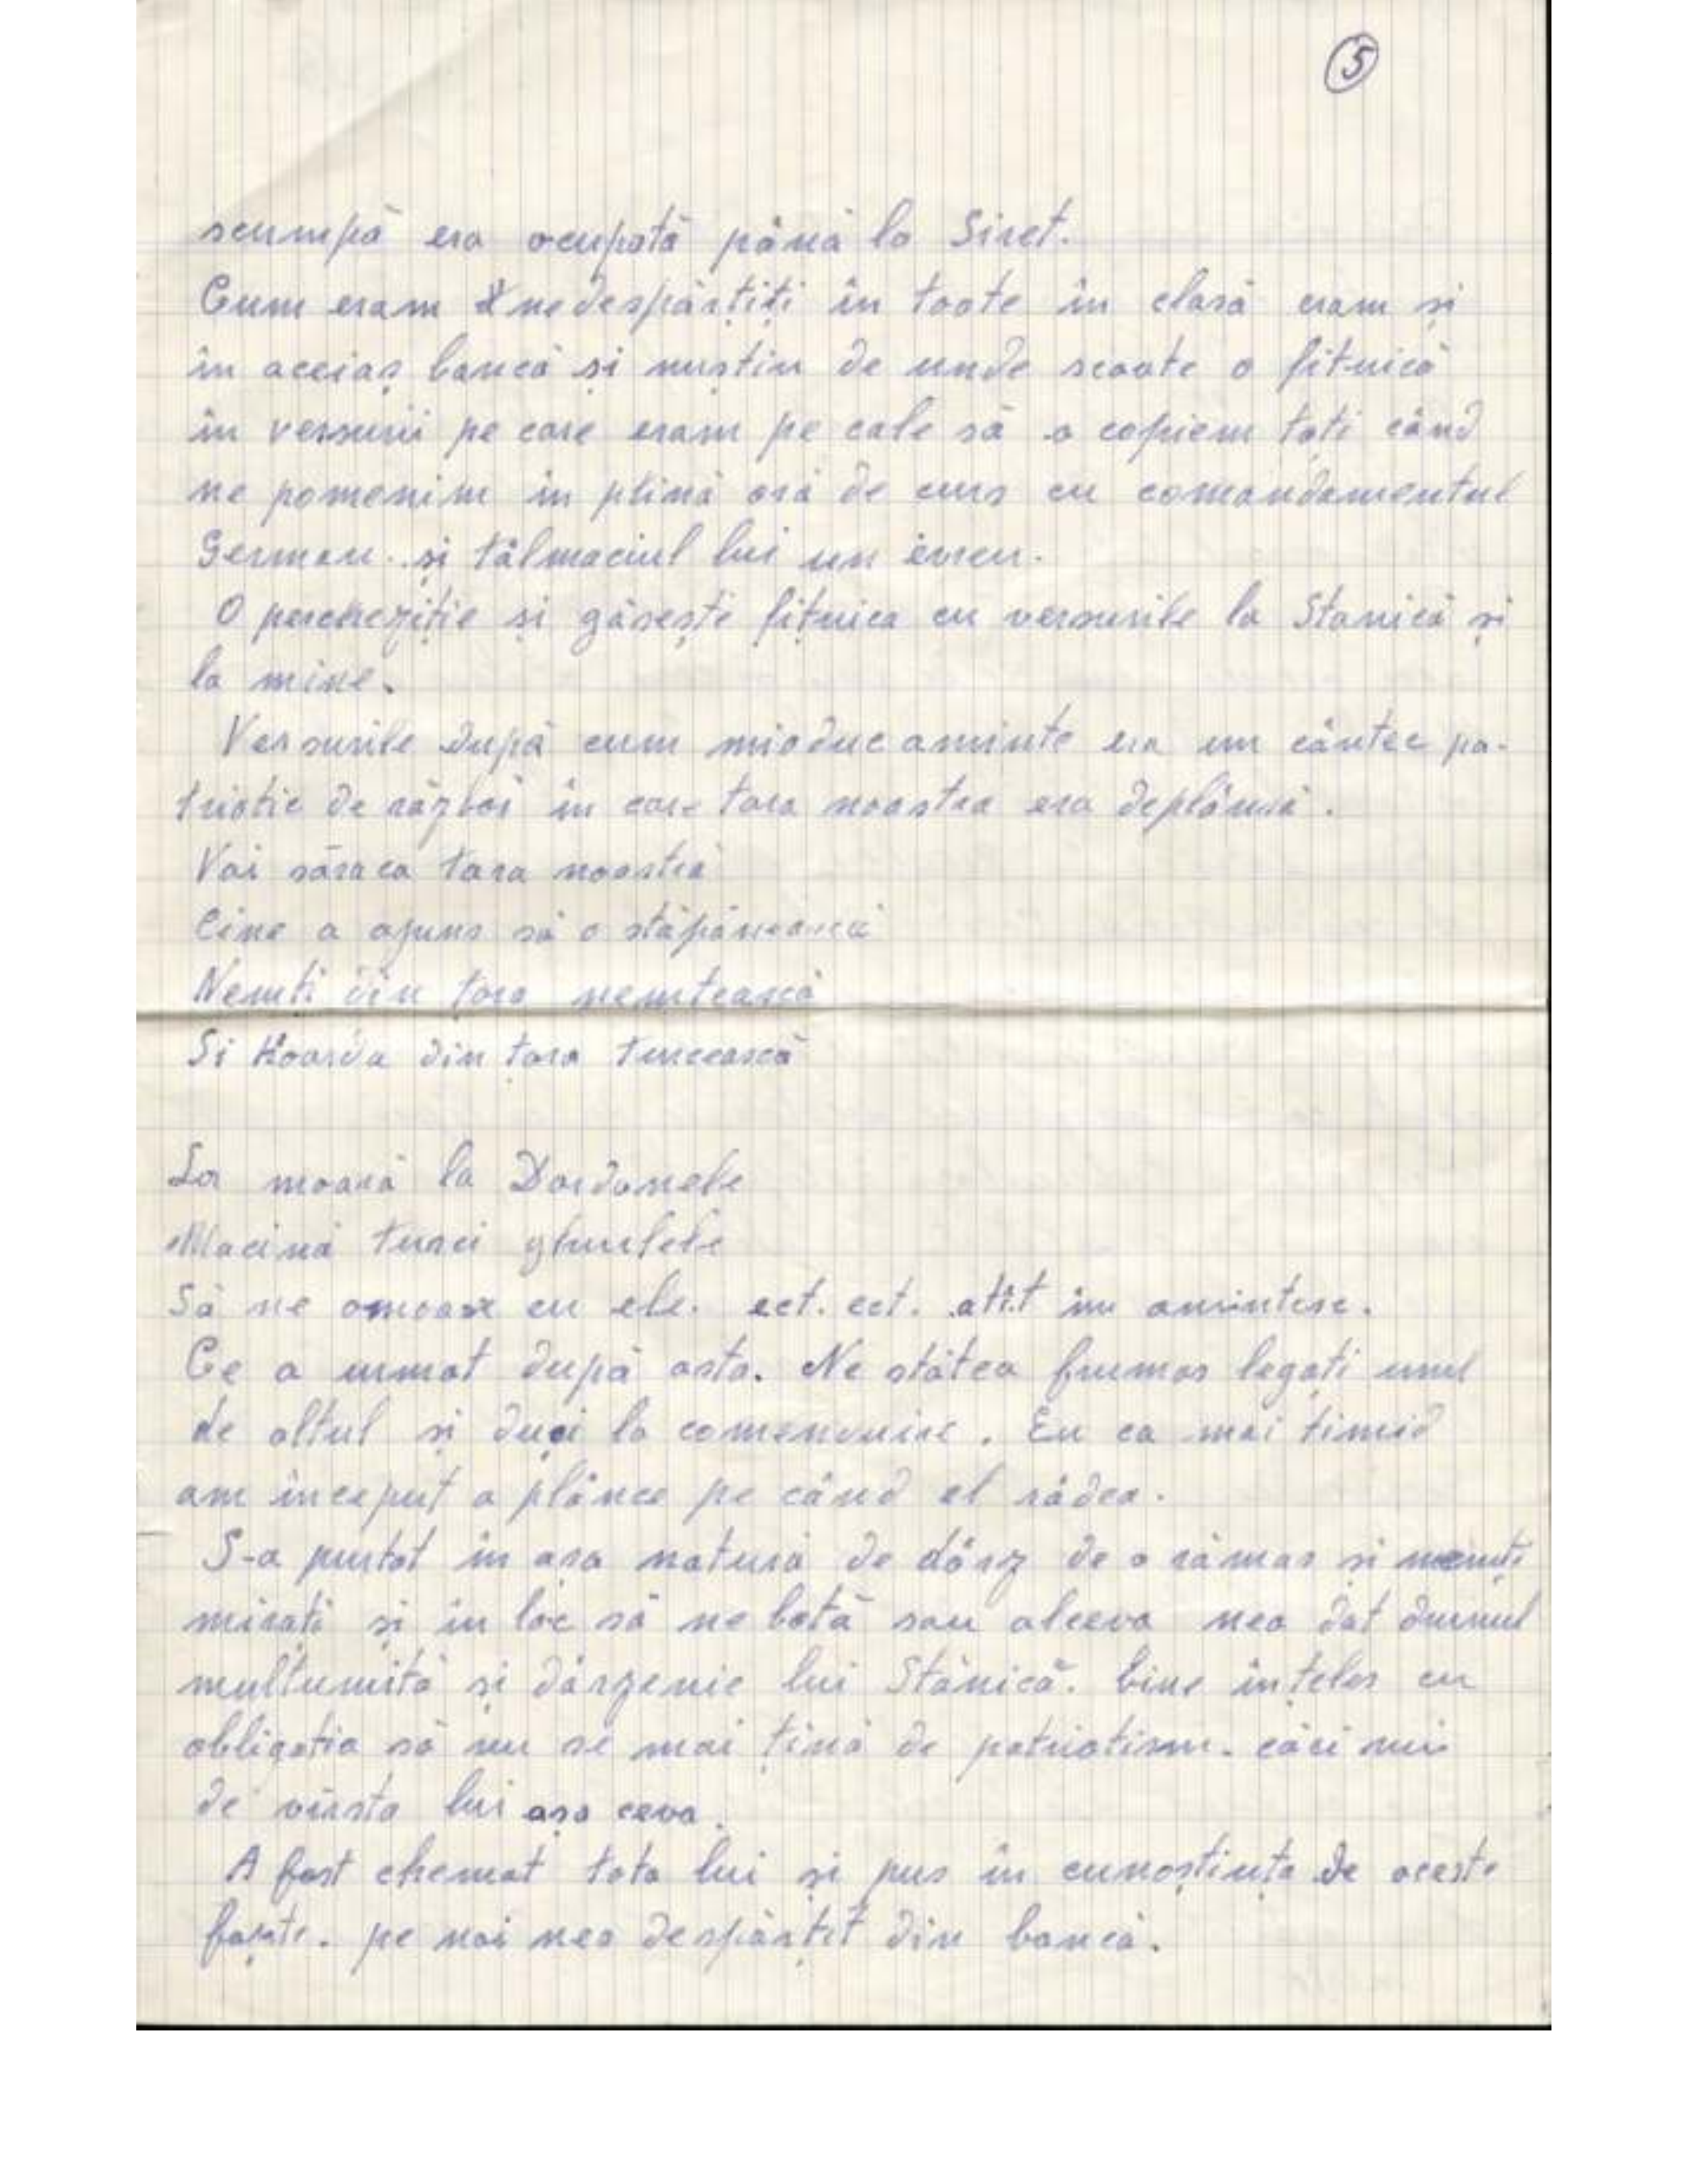 5
scumpă era ocupată până la Siret.
Cum eram nedespărțiți în toate în clasă eram și
în aceiaș bancă și nuștiu de unde scoate o fițuică
în versurii pe care eram pe cale să o copiem toți când
ne pomenim în plină oră de curs cu comandamentul
German. și tălmaciul lui un evreu.
O perchezitie si găsește fițuica cu versurile la Stanică și
la mine.
Versurile după cum mioduc aminte era un cântec pa-
triotic de război în care tara noastra era deplânsă.
Vai săraca tara noastră
Cine a ajuns să o stăpânească
Nemti din tara nemtească
Si Hoarda din țara turcească
La moară la Dardanele
Macină turci ghiulele
Să ne omoare cu ele. ect. ect. atît îm amintesc.
Ce a urmat după asta. Ne stătea frumos legați unul
de altul și duși la comenduire. Eu ca mai timid
am început a plânce pe când el râdea.
S-a purtat în așa natură de dârz de a rămas și nemți
mirați și în loc să ne bată sau alceva nea dat drumul
multumită și dârzenie lui Stănică. bine înțeles cu
obligatia să nu se mai țină de patriotism. căci nui
de vârsta lui așa ceva.
A fost chemat tata lui și pus în cunoștiuța de aceste
fapte. pe noi nea despărțit din bancă.